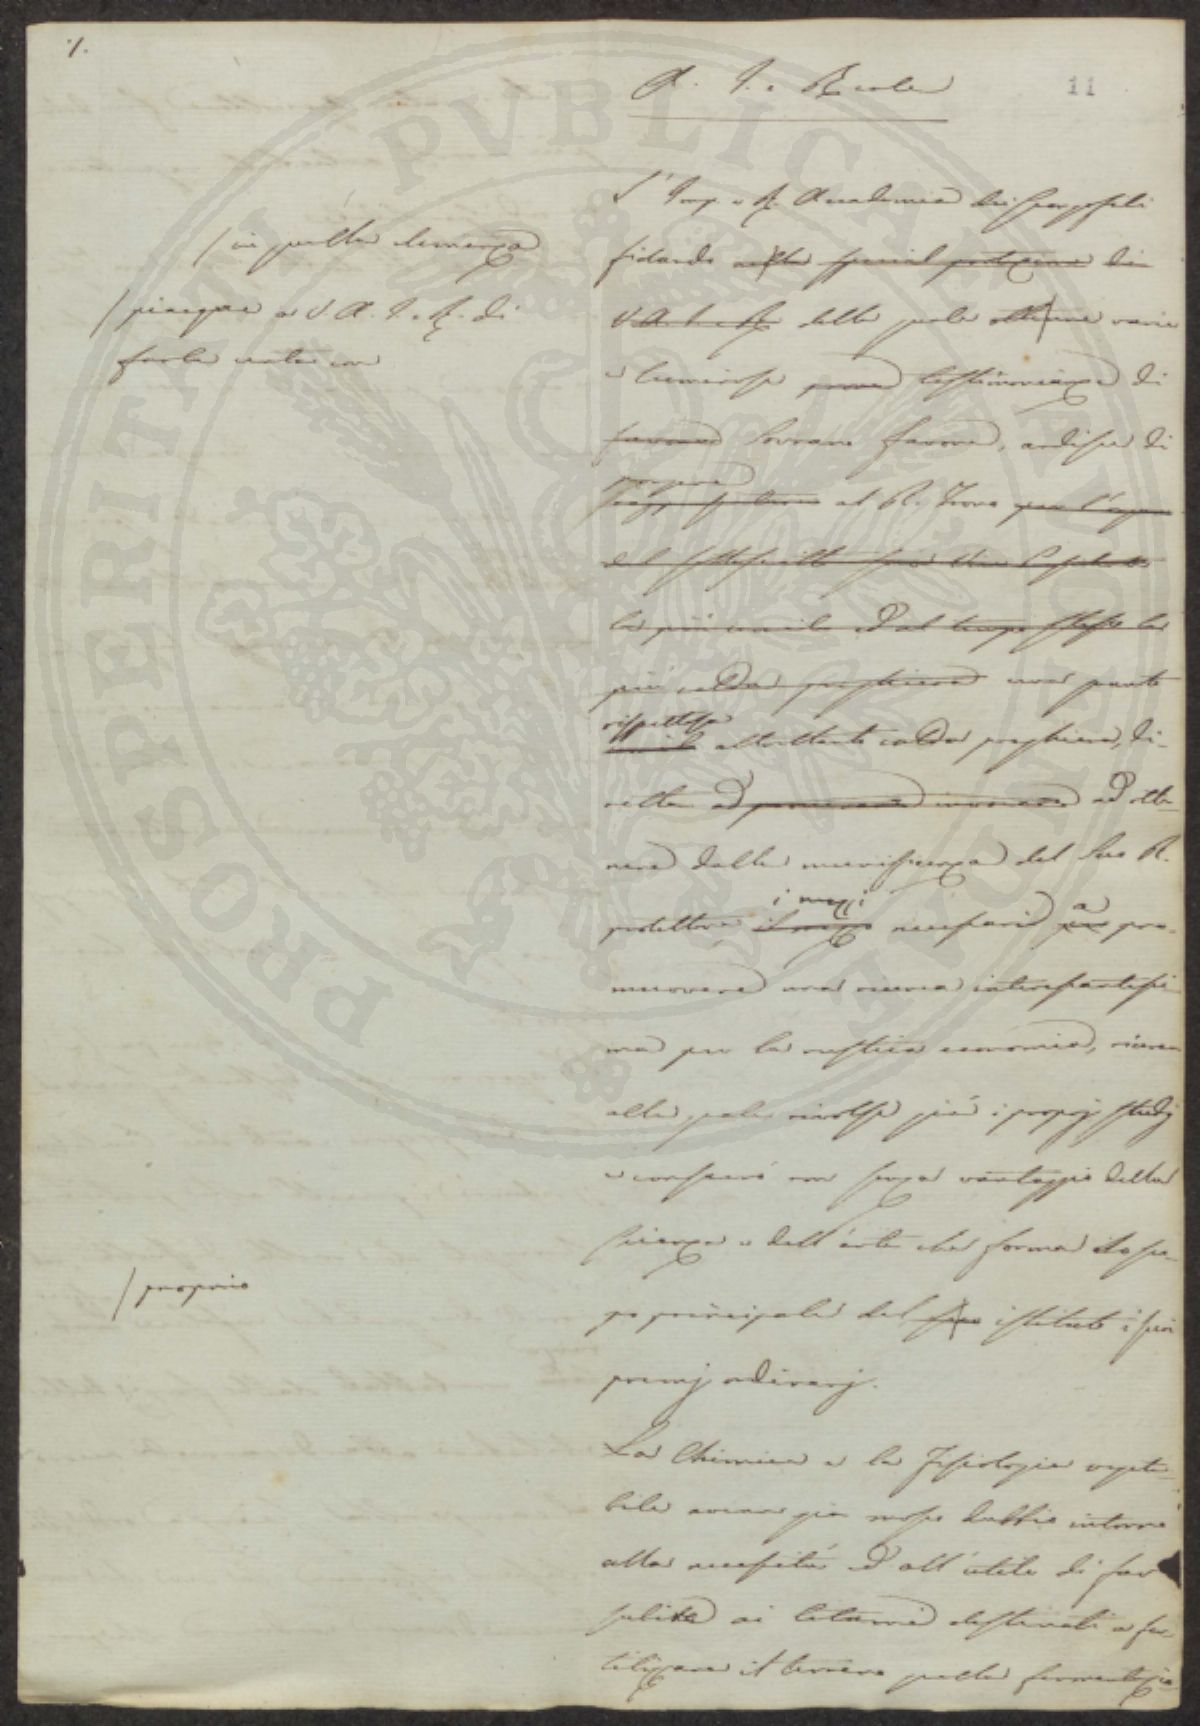 1.
A. I. e Reale
11
L'Imp. e R. Accademia dei Georgofili
fidando nella special protezione di
V. A. I. e R. dalla quale ottenne varie
e luminose prove testimonianze di
favore Sovrano favore, ardisce di
porgere
al R. Trono per l'organo
del sottoscritto suo
la più umile ed al tempo stesso la
più calda preghiera una quanto
rispettosa
umile altrettanto calda preghiera, di-
retta ad promuovere ad otte-
nere dalla munificenza del Suo R.
i mezzi
protettore il mezzo necessari a per pro-
muovere una ricerca interessantissi-
ma per la rustica economia, ricerca
alla quale rivolse già i proprj studj
e consacrò non senza vantaggio della
scienza e dell'arte che forma lo sco-
po principale del suo istituto i suoi
premj ordinarj.
La Chimica e la Fisiologia vegeta-
bile avean già mosso dubbio intorno
alla necessità ed all'utile di far
subire ai letami destinati a fer-
tilizzare il terreno quella fermentazio-
/ in quella clemenza
/ piacque a V. A. I. e R. di
farla
/ proprio
PROSPERITATI PVBLICAE AVGENDAE